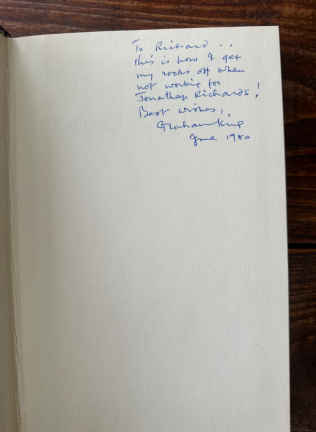 To Richard . .
this is how I get
my rocks off when
not working for
Jonathan Richards!
Best wishes,
Graham King
June 1980